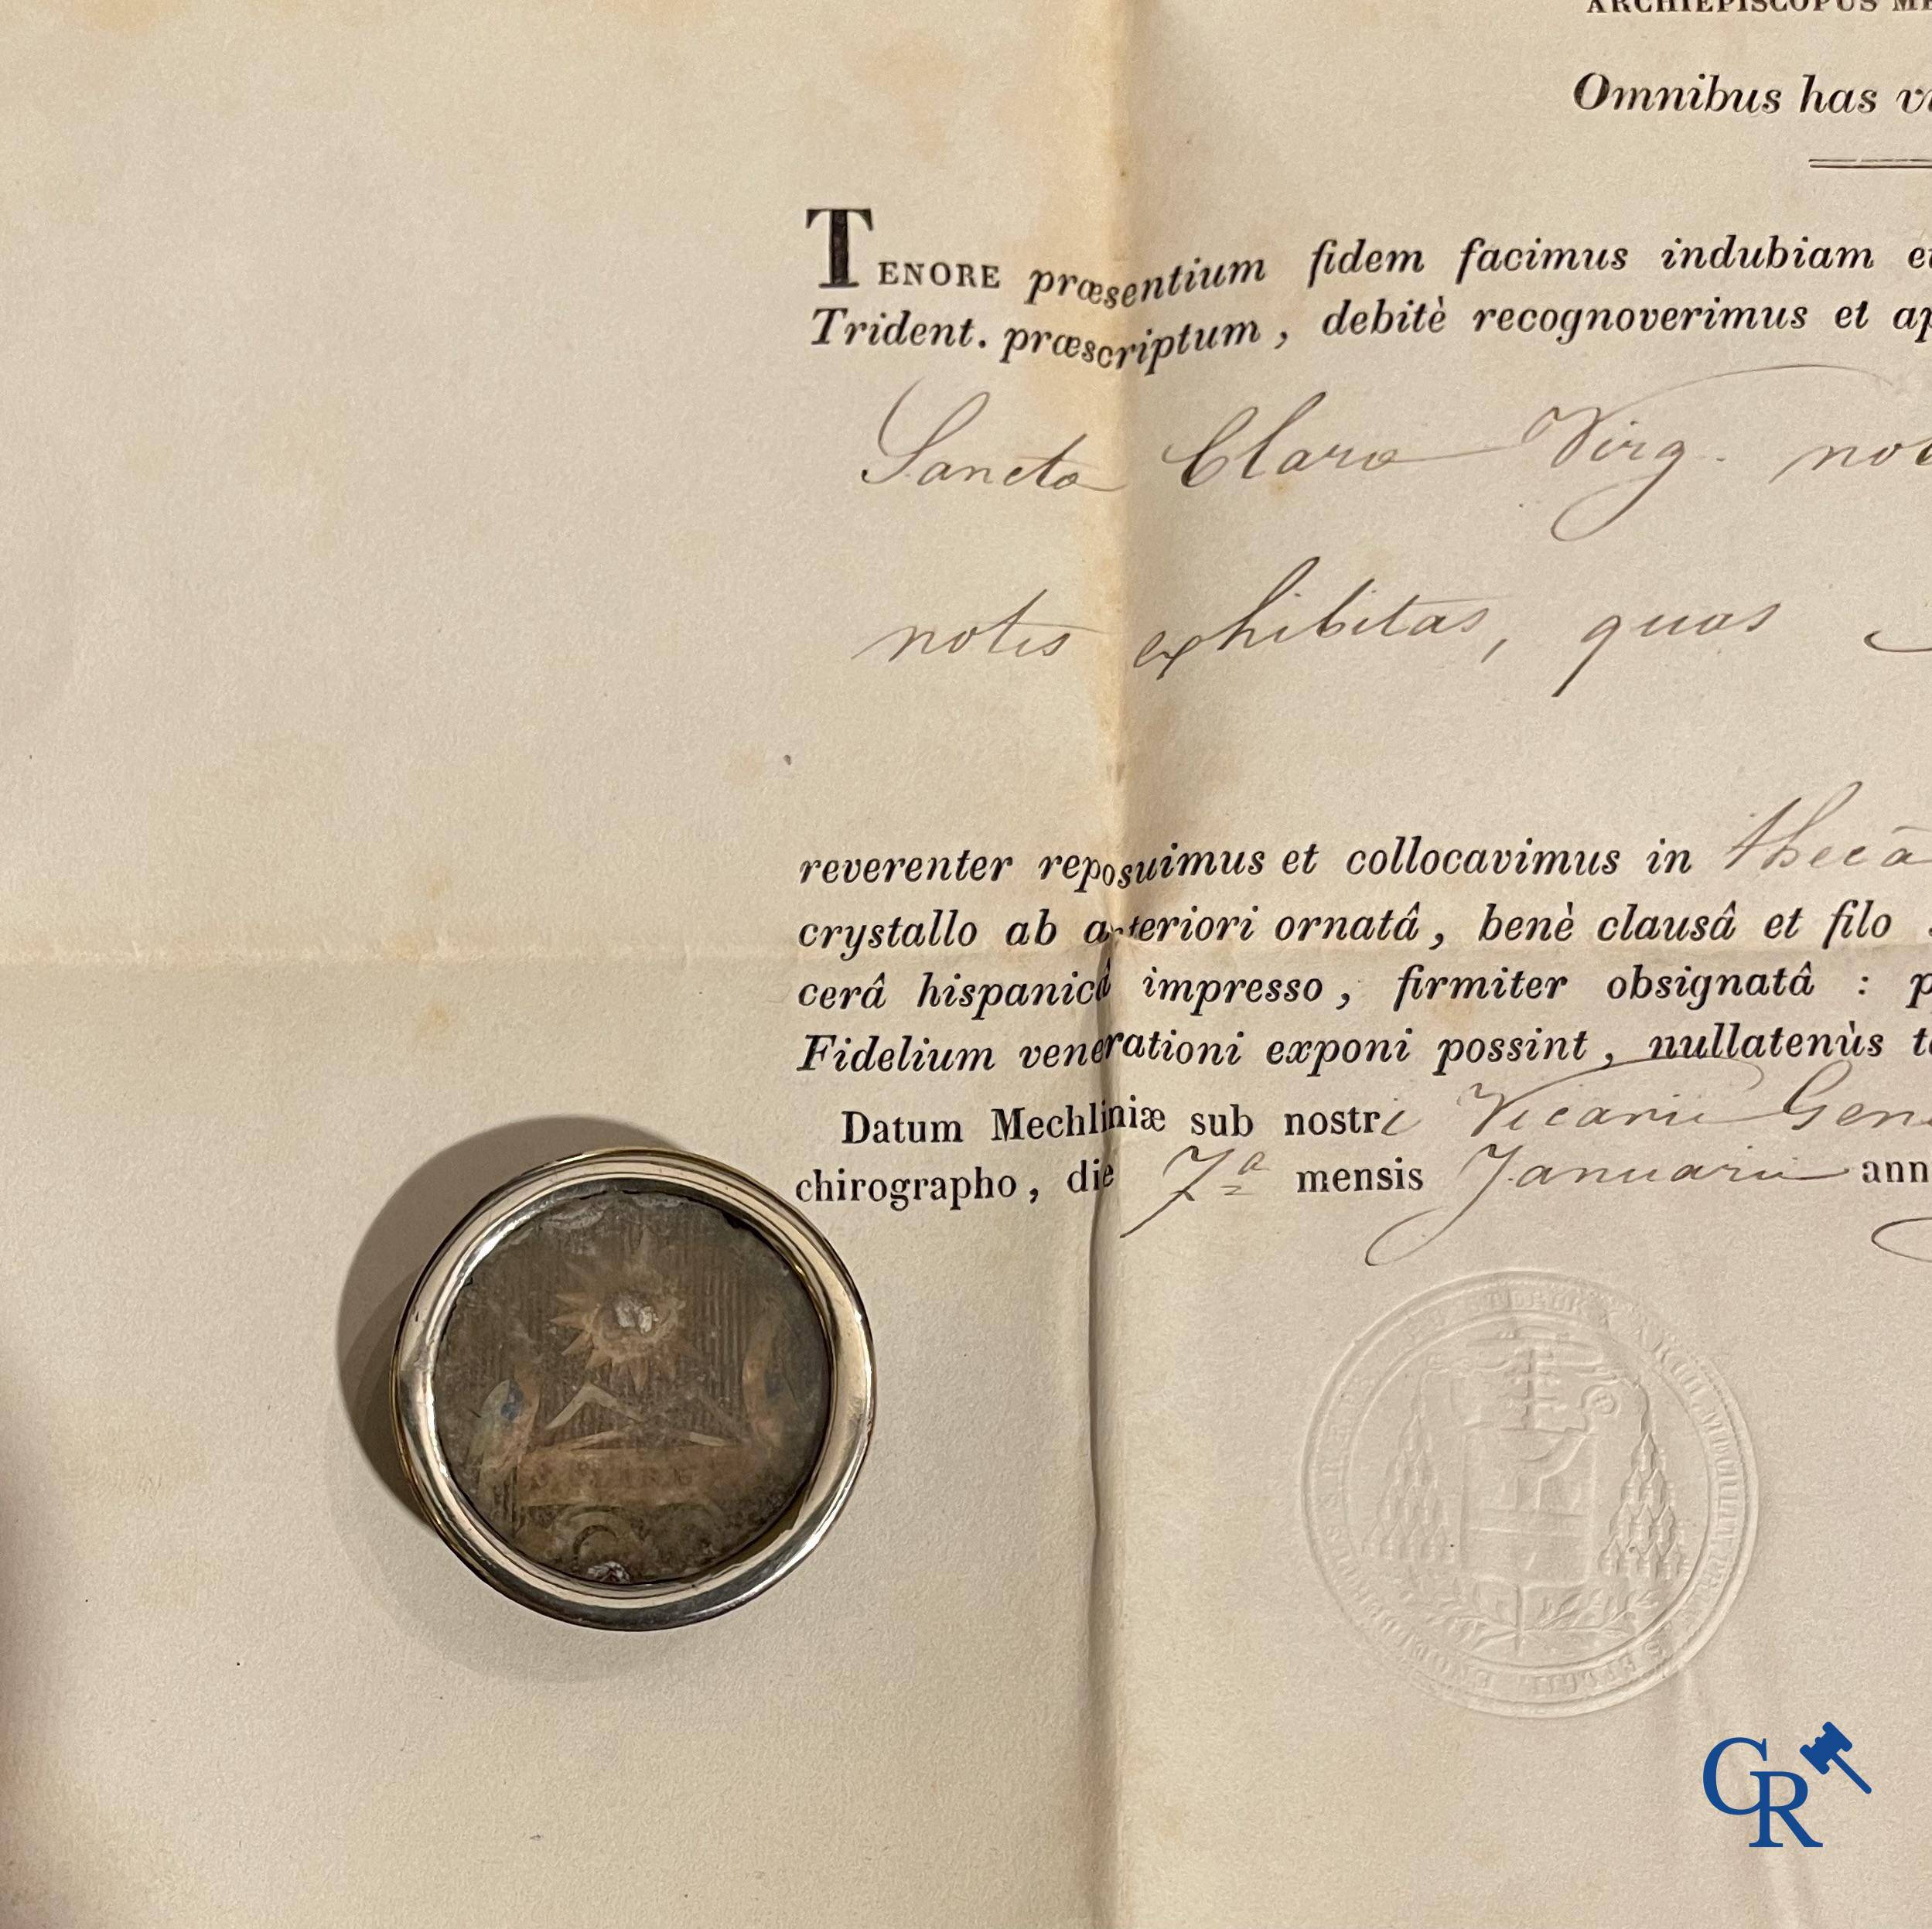 ARCHIEPISCOPUS
Omnibus has
TENORE præsentium fidem facimus indubiam
Trident. præscriptum, debitè recognoverimus et
Sancta Clara Virg.
notis exhibitas, quas
reverenter reposuimus et collocavimus in thecâ
crystallo ab anteriori ornatâ, benè clausâ et filo
cerâ hispanicâ impresso, firmiter obsignatâ :
Fidelium venerationi exponi possint, nullatenùs
Datum Mechliniæ sub nostri Vicarii Gen
chirographo, die 7ª mensis Januarii ann
CR